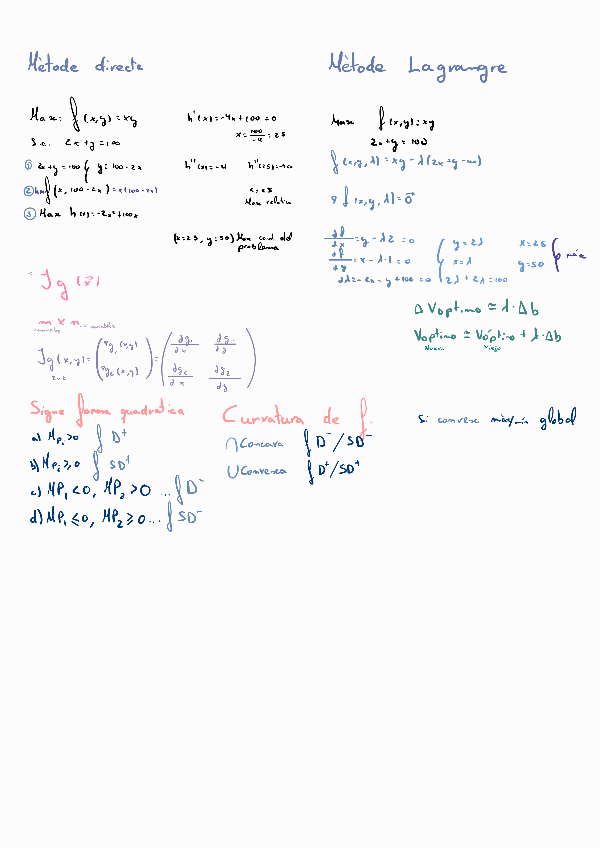 Mètode directe
Max: f(x,y) = xy
s.a. 2x + y = 100
① 2x+y = 100 { y = 100-2x
② f(x, 100-2x) = x(100-2x)
③ Max h(x) = -2x²+100x
h'(x) = -4x+100 = 0
x = 100/-4 = 25
h''(x) = -4 h''(25) = -4<0
x = 25
Max relatiu
(x=25, y=50) Max cond del
problema
Mètode Lagrangre
Max f(x,y) = xy
2x+y = 100
f(x,y,λ) = xy - λ(2x+y-100)
∇f(x,y,λ) = 0⃗
∂f/∂x = y-λ2 = 0
∂f/∂y = x-λ·1 = 0
∂λ = -2x-y+100 = 0
{ y = 2λ
x = λ
2λ+2λ = 100
x = 25
y = 50
Δ Voptimo ≃ λ·Δb
Voptimo ≃ Vóptimo + λ·Δb
Nuevo Viejo
Jg(x⃗)
m x n = variables
Jg(x,y) = (g₁(x,y) g₂(x,y)) = (∂g₁/∂x ∂g₁/∂y ∂g₂/∂x ∂g₂/∂y)
2x2
Signe forma quadratica
a) MPᵢ>0 f D⁺
b) MPᵢ≥0 f SD⁺
c) MP₁<0, MP₂>0 ... f D⁻
d) MP₁≤0, MP₂≥0 ... f SD⁻
Curvatura de f.
∩ Concava f D⁻/SD⁻
∪ Convexa f D⁺/SD⁺
Si convexe màx/mín global